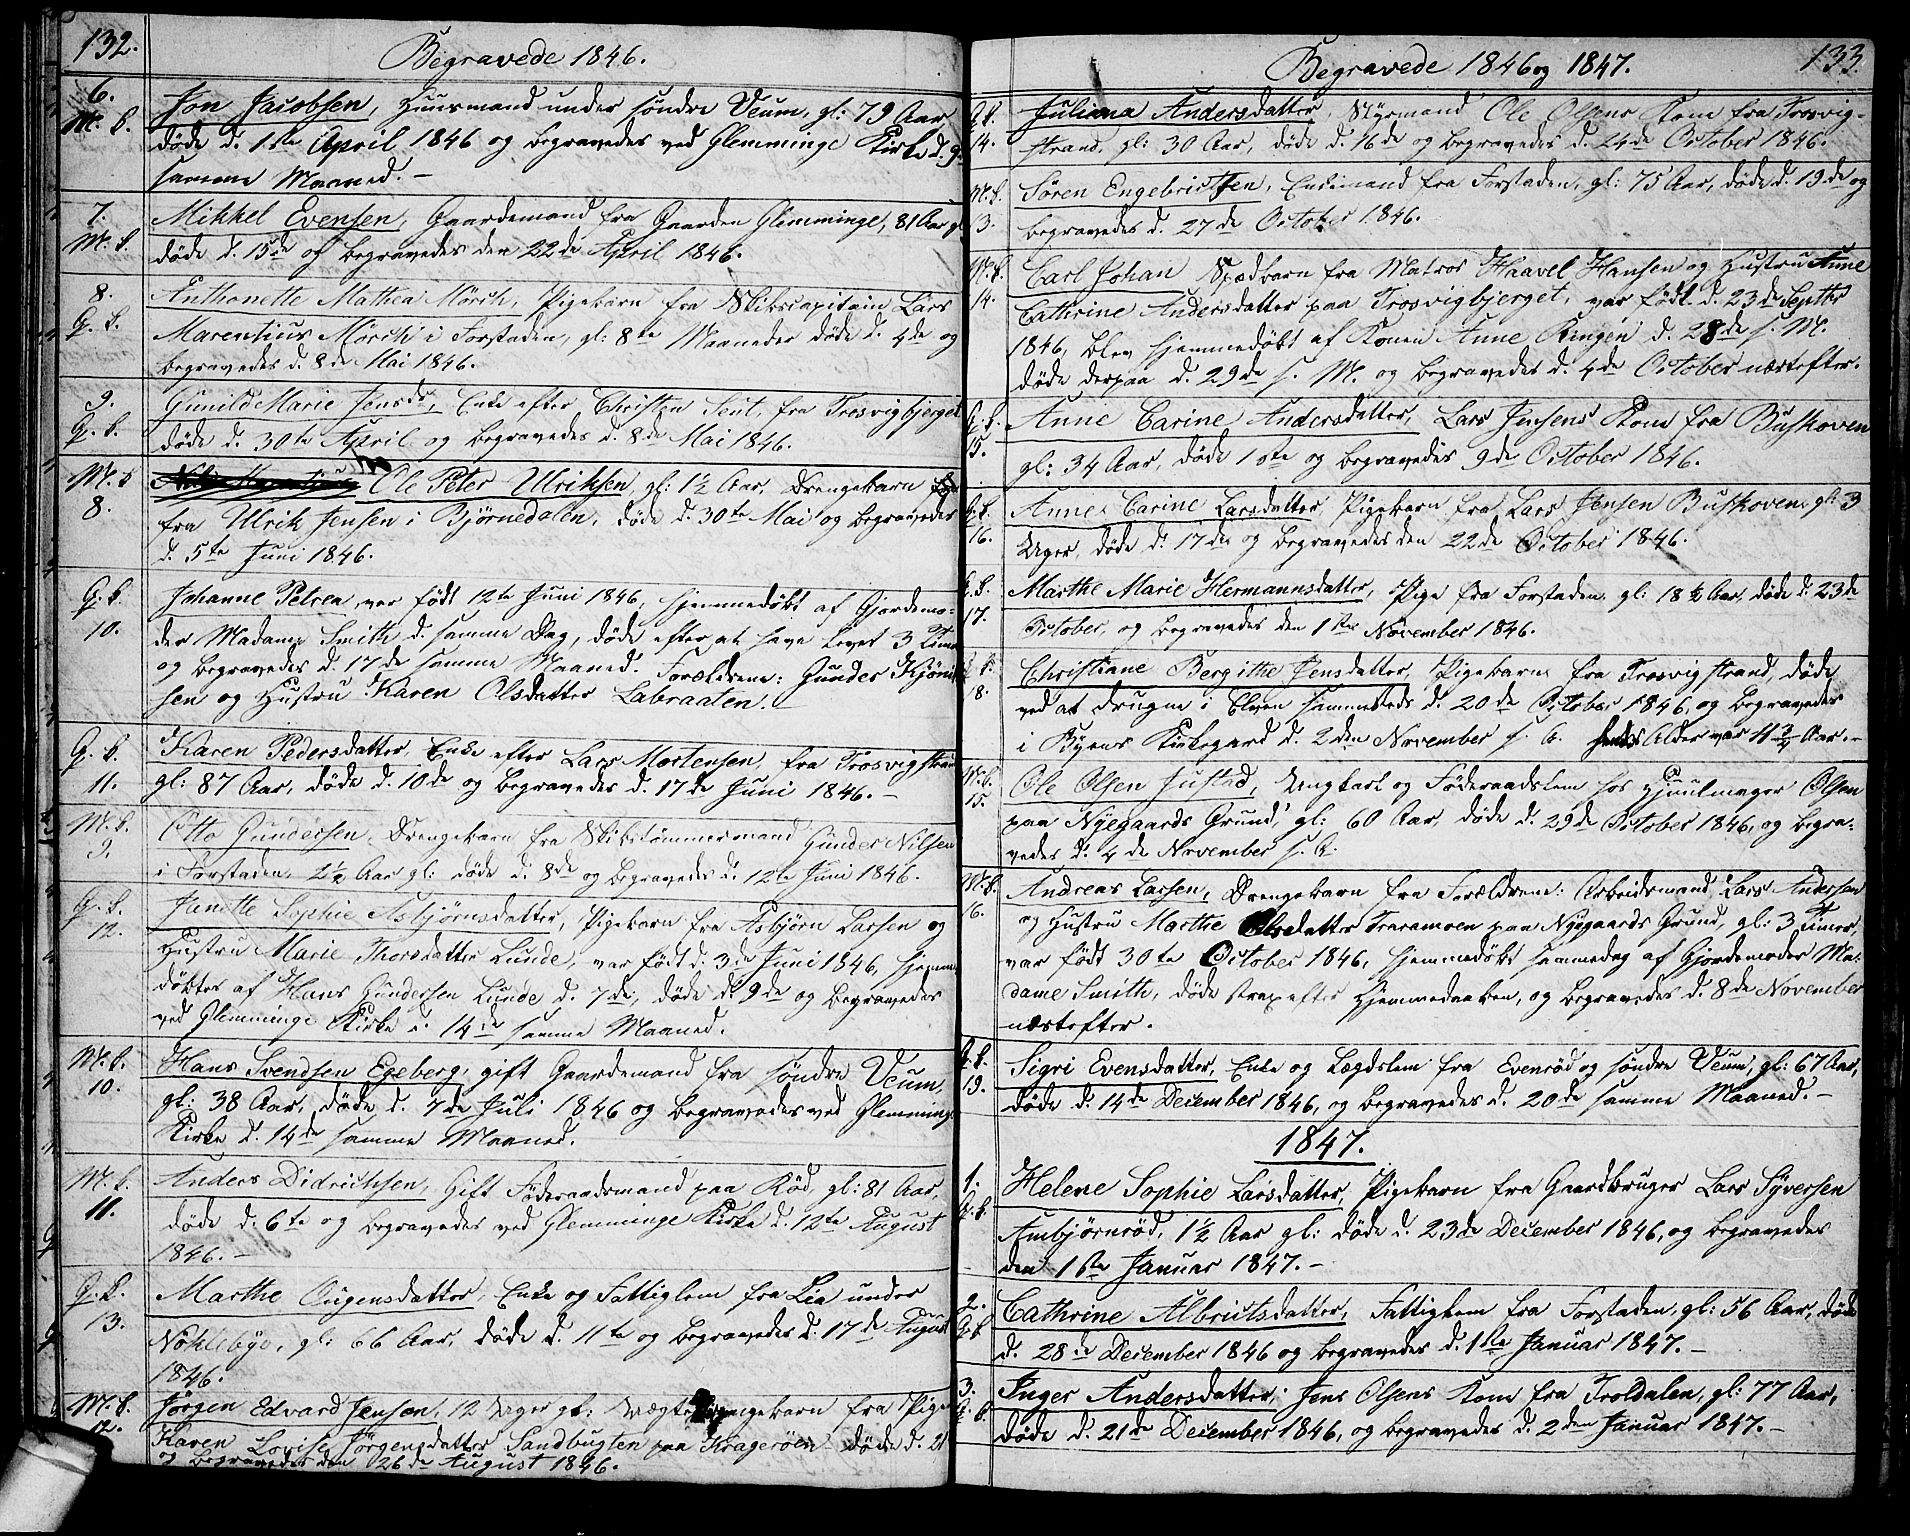 132.
Begravede 1846.
6.
M. K.
Jon Jacobsen, Huusmand under søndre Veum, gl: 79 Aar
døde d. 1ste April 1846 og begravedes ved Glemminge Kirke d. 9
samme Maaned. —
7.
M. K.
Mikkel Evensen, Gaardemand fra Gaarden Glemminge, 81 Aar gl
døde d. 15de og begravedes den 22de April 1846.
8.
Q. K.
Anthonette Mathea Mörch, Pigebarn fra Skibscapitain Lars
Marentius Mörch i Forstaden, gl: 8te Maaneder døde d. 4de og
begravedes d. 8de Mai 1846.
9.
Q. K.
Gunild Marie Jensdr, Enke efter Christen Seut, fra Trosvigbjerget
døde d. 30te April og begravedes d. 8de Mai 1846.
M. K
8.
Ole Peter Ulriksen gl: 1½ Aar, Drengebarn
fra Ulrik Jensen i Bjørnedalen, døde d. 30te Mai og begravedes
d. 5te Juni 1846.
Q. K.
10.
Johanne Petrea, var født 12te Juni 1846, hjemmedøbt af Gjordemo-
der Madame Smith d. samme Dag, døde efter at have levet 3 Time
og begravedes d. 17de samme Maaned. Forældrene: Gunder Kjøni
sen og Hustru Karen Olsdatter Labraaten. —
Q. K.
11.
Karen Pedersdatter, Enke efter Lars Mortensen, fra Trosvigstrand
gl: 87 Aar, døde d. 10de og begravedes d. 17de Juni 1846. —
M. K.
9.
Otto Gundersen, Drengebarn fra Skibstömmermand Gunder Nilsen
i Forstaden, 2½ Aar gl: døde d. 8de og begravedes d. 12te Juni 1846.
Q. K.
12.
Janette Sophie Asbjørnsdatter, Pigebarn fra Asbjørn Larsen og
Hustru Marie Thorsdatter Lunde, var født d. 3de Juni 1846, hjemme
döbtes af Hans Gundersen Lunde d. 7de, døde d. 9de og begravedes
ved Glemminge Kirke d. 14de samme Maaned.
M. K.
10.
Hans Svendsen Egeberg, gift Gaardemand fra søndre Veum,
gl: 38 Aar, døde d. 7de Juli 1846 og begravedes ved Glemminge
Kirke d. 14de samme Maaned.
M. K.
11.
Anders Didrichsen, Gift Föderaadsmand paa Röd, gl: 81 Aar,
døde d. 6te og begravedes ved Glemminge Kirke d. 12te August
1846. —
Q. K.
13.
Marthe Augensdatter, Enke og Fattiglem fra Lia under
Nøkleby, gl: 66 Aar, døde d. 11te og begravedes d. 17de August
1846.
M. K.
12.
Jørgen Edvard Jensen, 12 Uger gl: Uægte Drengebarn fra Pige
Karen Lovise Jørgensdatter Sandbugten paa Kragerøen døde d. 21
og begravedes den 26de August 1846.
Begravede 1846 og 1847.
133.
Q. K.
14.
Juliana Andersdatter, Styrmand Ole Olsens Kone fra Trosvig-
strand, gl: 30 Aar, døde d. 16de og begravedes d. 24de October 1846.
M. K.
3.
Søren Engebrictsen, Enkemand fra Forstaden, gl: 75 Aar, døde d. 19de og
begravedes d. 27de October 1846.
M. K.
14.
Carl Johan Spædbarn fra Matros Haavel Hansen og Hustru Anne
Cathrine Andersdatter paa Trosvigbjerget, var født d. 23de Septbr
1846, blev hjemmedøbt af Konen Anne Ringen d. 28de s. M.
døde derpaa d. 29de s. M. og begravedes d. 4de October næstefter.
Q. K.
15.
Anne Carine Andersdatter, Lars Jensens Kone fra Buskoven
gl: 34 Aar, døde 1ste og begravedes 9de October 1846.
Q. K.
16.
Anne Carine Larsdatter Pigebarn fra Lars Jensen Buskoven, gl: 3
Uger, døde d. 17de og begravedes den 22de October 1846.
Q. K.
17.
Marthe Marie Hermannsdatter, Pige fra Forstaden gl: 18½ Aar, døde d. 23de
October, og begravedes den 1ste November 1846.
Q. K.
8.
Christiane Bergithe Jensdatter, Pigebarn fra Trosvigstrand, døde
ved at drugne i Elven sammesteds d. 20de October 1846, og begravedes
i Byens Kirkegaard d. 2den November s. A. hendes Alder var 4¾ Aar. —
M. K.
15.
Ole Olsen Justad, Ungkarl og Föderaadslem hos Hjuulmager Olsen
paa Nygaards Grund, gl: 60 Aar, døde d. 29de October 1846, og begra-
vedes d. 4de November s. A.
M. K.
16.
Andreas Larsen, Drengebarn fra Forældrene: Arbeidsmand Lars Andersen
og Hustru Marthe Olsdatter Traramoen paa Nygaards Grund, gl: 3 Timer,
var født 30te October 1846, hjemmedøbt sammedag af Gjordemoder Ma-
dame Smith, døde strax efter Hjemmedaaben, og begravedes d. 8de November
næstefter.
Q. K.
19.
Sigri Evensdatter, Enke og Lægdslem fra Evenröd og søndre Veum, gl: 67 Aar,
døde d. 14de December 1846, og begravedes d. 20de samme Maaned. —
1847.
1.
Q. K.
Helene Sophie Larsdatter, Pigebarn fra Gaardbruger Lars Syversen
Ambjørnröd, 1½ Aar gl: døde d. 23de December 1846, og begravedes
den 1ste Januar 1847. —
2.
Q. K
Cathrine Albrictsdatter, Fattiglem fra Forstaden, gl: 56 Aar, døde
d. 28de December 1846 og begravedes d. 1ste Januar 1847. —
3.
Q. K.
Inger Andersdatter, Jens Olsens Kone fra Troldalen, gl: 77 Aar,
døde d. 21de December 1846, og begravedes d. 2den Januar 1847. —